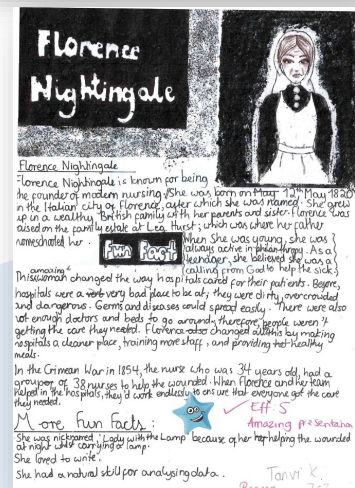 Florence
Nightingale
Florence Nightingale
Florence Nightingale is known for being
the founder of modern nursing. She was born on May 12th May 1820
in the Italian city of Florence, after which she was named. She grew
up in a wealthy British family with her parents and sister. Florence was
raised on the family estate at Lea Hurst; which was where her father
homeschooled her.
Fun Fact
When she was young, she was
always active in philanthropy. As a
teenager, she believed she was a
calling from God to help the sick
amazing
This woman changed the way hospitals cared for their patients. Before,
hospitals were a very bad place to be at; they were dirty, overcrowded
and dangerous. Germs and diseases could spread easily. There were also
not enough doctors and beds to go around, therefore, people weren't
getting the care they needed. Florence also changed all this by making
hospitals a cleaner place, training more staff, and providing healthy
meals.
In the Crimean War in 1854, the nurse who was 34 years old, had a
group of 38 nurses to help the wounded. When Florence and her team
helped in the hospitals, they'd work endlessly to ensure that everyone got the care
they needed.
Eff: 5
Amazing presentation
More Fun Facts:
She was nicknamed 'Lady with the Lamp' because of her helping the wounded
at night whilst carrying a lamp.
She loved to write.
She had a natural skill for analysing data.
Tanvi K.